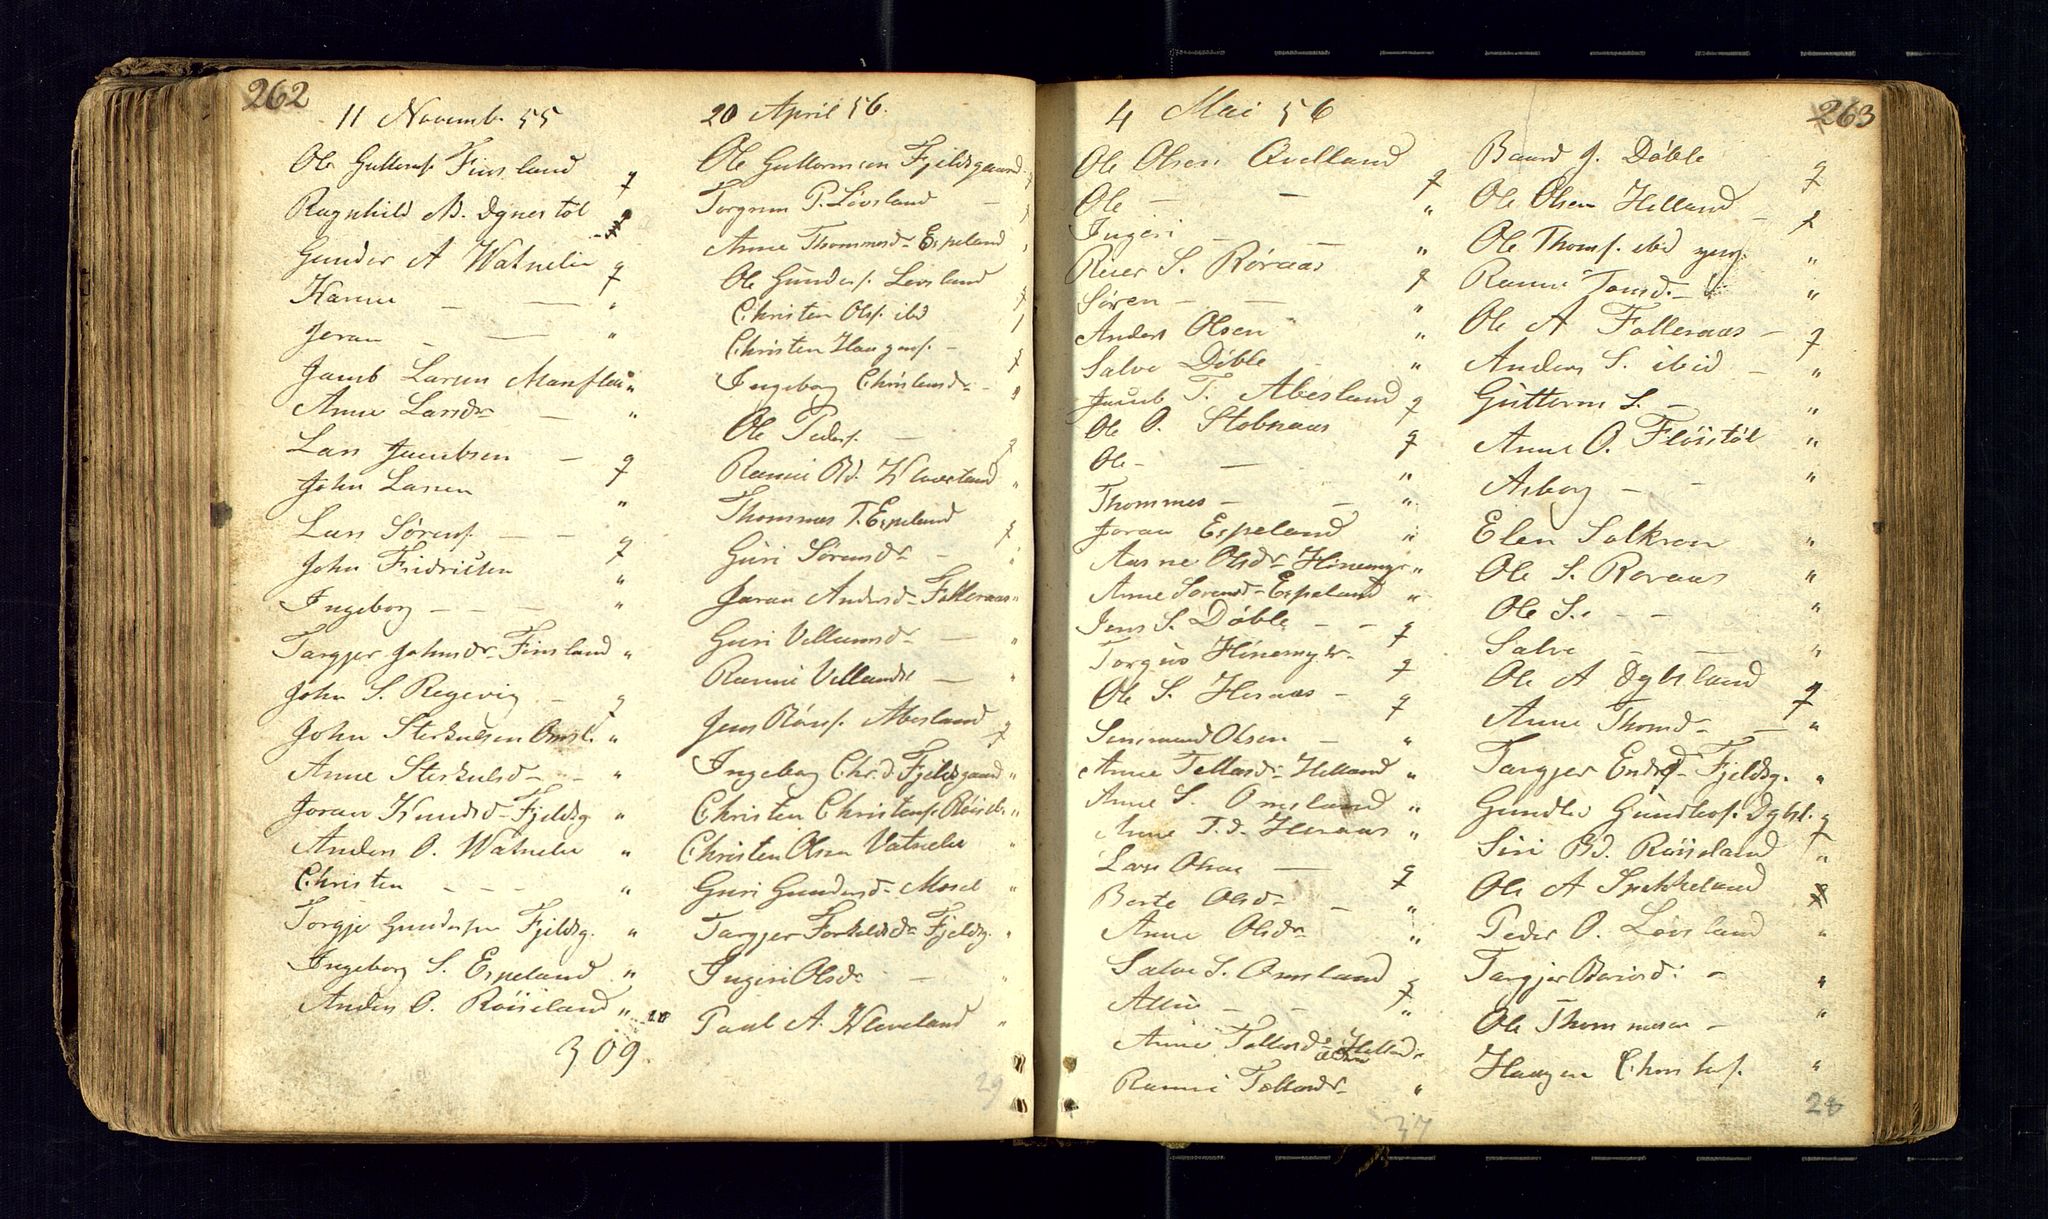 262
11 Novemb. 55
Ole Guttormf. Finsland q
Ragnhild N. Dynestøl
Gunder A Watnelie q
Hanne — — "
Joran — — "
Jacob Larsen Monflau "
Anne Larsdr — "
Lars Jacobsen — q
John Larsen "
Lars Sørensf. — — q
John Fridriksen "
Ingeborg — — — "
Targjer Johnsdr Finsland "
John S. Regevig — q
John Sterkulsen Omsl. "
Anne Sterkulsd — — "
Joran Knudsd Fjeldsg "
Anders O. Watnelie "
Christen — — — "
Torgje Gundersen Fjeldsg. "
Ingeborg S. Espeland "
Anders O. Røiseland "
309
20 April 56.
Ole Guttormsen Fjeldsgaard
Torgrim P. Løvsland —
Anne Thommesd Espeland
Ole Gundersf. Løvsland
Christen Olsf. ibid
Christen Haagensf. —
Ingeborg Christensdr —
Ole Pedersf. —
Ranni Bd. Kleveland "
Thommes T. Espeland
Guri Sørensdr — "
Joran Andersd Falleraas "
Guri Villumsdr — "
Ranni Villumsdr — "
Jens Rønsf. Abesland q
Ingeborg Chr.d. Fjeldsgaard "
Christen Christensf. Røisel. "
Christen Olsen Vatnelie "
Guri Gundersd Mosel "
Targjer Torkeldsd Fjeldsg. "
Ingeri Olsdr — "
Paul A. Kleveland "
29
4 Mai 56
Ole Olsen Qvelland q
Ole — — "
Ingeri — "
Reier S. Røraas q
Søren — — "
Anders Olsen "
Salve Døble "
Jacob T. Abesland q
Ole O. Stobnaas q
Ole — — "
Thommes — — "
Joran Espeland "
Aasne Olsdr Hønemyr "
Anne Sørensd Espeland "
Jens S. Døble — — q
Torgius Hønemyr — q
Ole S. Heraas — q
Simmund Olsen — "
Anne Tellesdr Helland "
Anne S. Omsland "
Anne T.d. Heraas "
Lars Olsen — q
Berte Olsdr — "
Anne Olsdr "
Salve S. Omsland q
Allis — — "
Anne Tellesdr Helland "
Ranni Tellesdr "
37
263
Baard J. Døble q
Ole Olsen Helland — q
Ole Thomsf. ibid yng. "
Ranni Tomsd — "
Ole A Falleraas — q
Anders S. ibid — "
Guttorm S. — "
Anne O. Fløistøl "
Asborg — — "
Elen Solkron "
Ole S. Røraas "
Ole S. — — "
Salve — — "
Ole A Dybsland q
Anne Thomsd — — "
Targjer Endresd Fjeldsg. "
Gundlev Gundlevsf. Dybsl. q
Siri Bd. Røiseland "
Ole A Spikkeland
Peder O. Løvsland "
Targjer Baardsd: — "
Ole Thommesen — "
Haagen Christensf. "
28